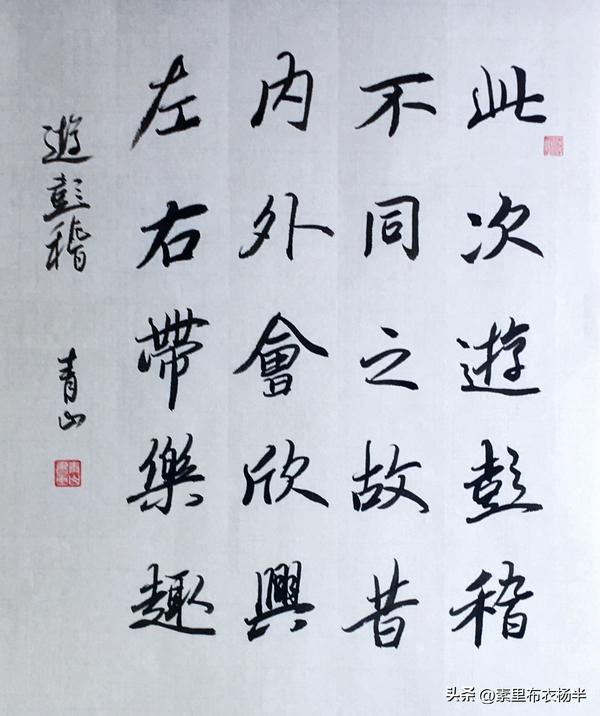 此次遊彭稽
不同之故昔
內外會欣興
左右帶樂趣
遊彭稽
青山
头条 @素里布衣杨半